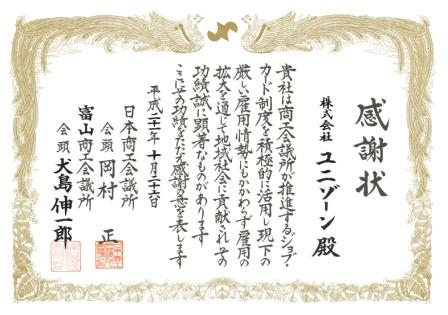 感謝状
株式会社 ユニゾーン 殿
貴社は商工会議所が推進するジョブ・
カード制度を積極的に活用し現下の
厳しい雇用情勢にもかかわらず雇用の
拡大を通して地域社会に貢献されその
功績誠に顕著なものがあります
ここにその功績をたたえ感謝の意を表します
平成二十二年十月二十六日
日本商工会議所
会頭 岡村 正
富山商工会議所
会頭 犬島伸一郎